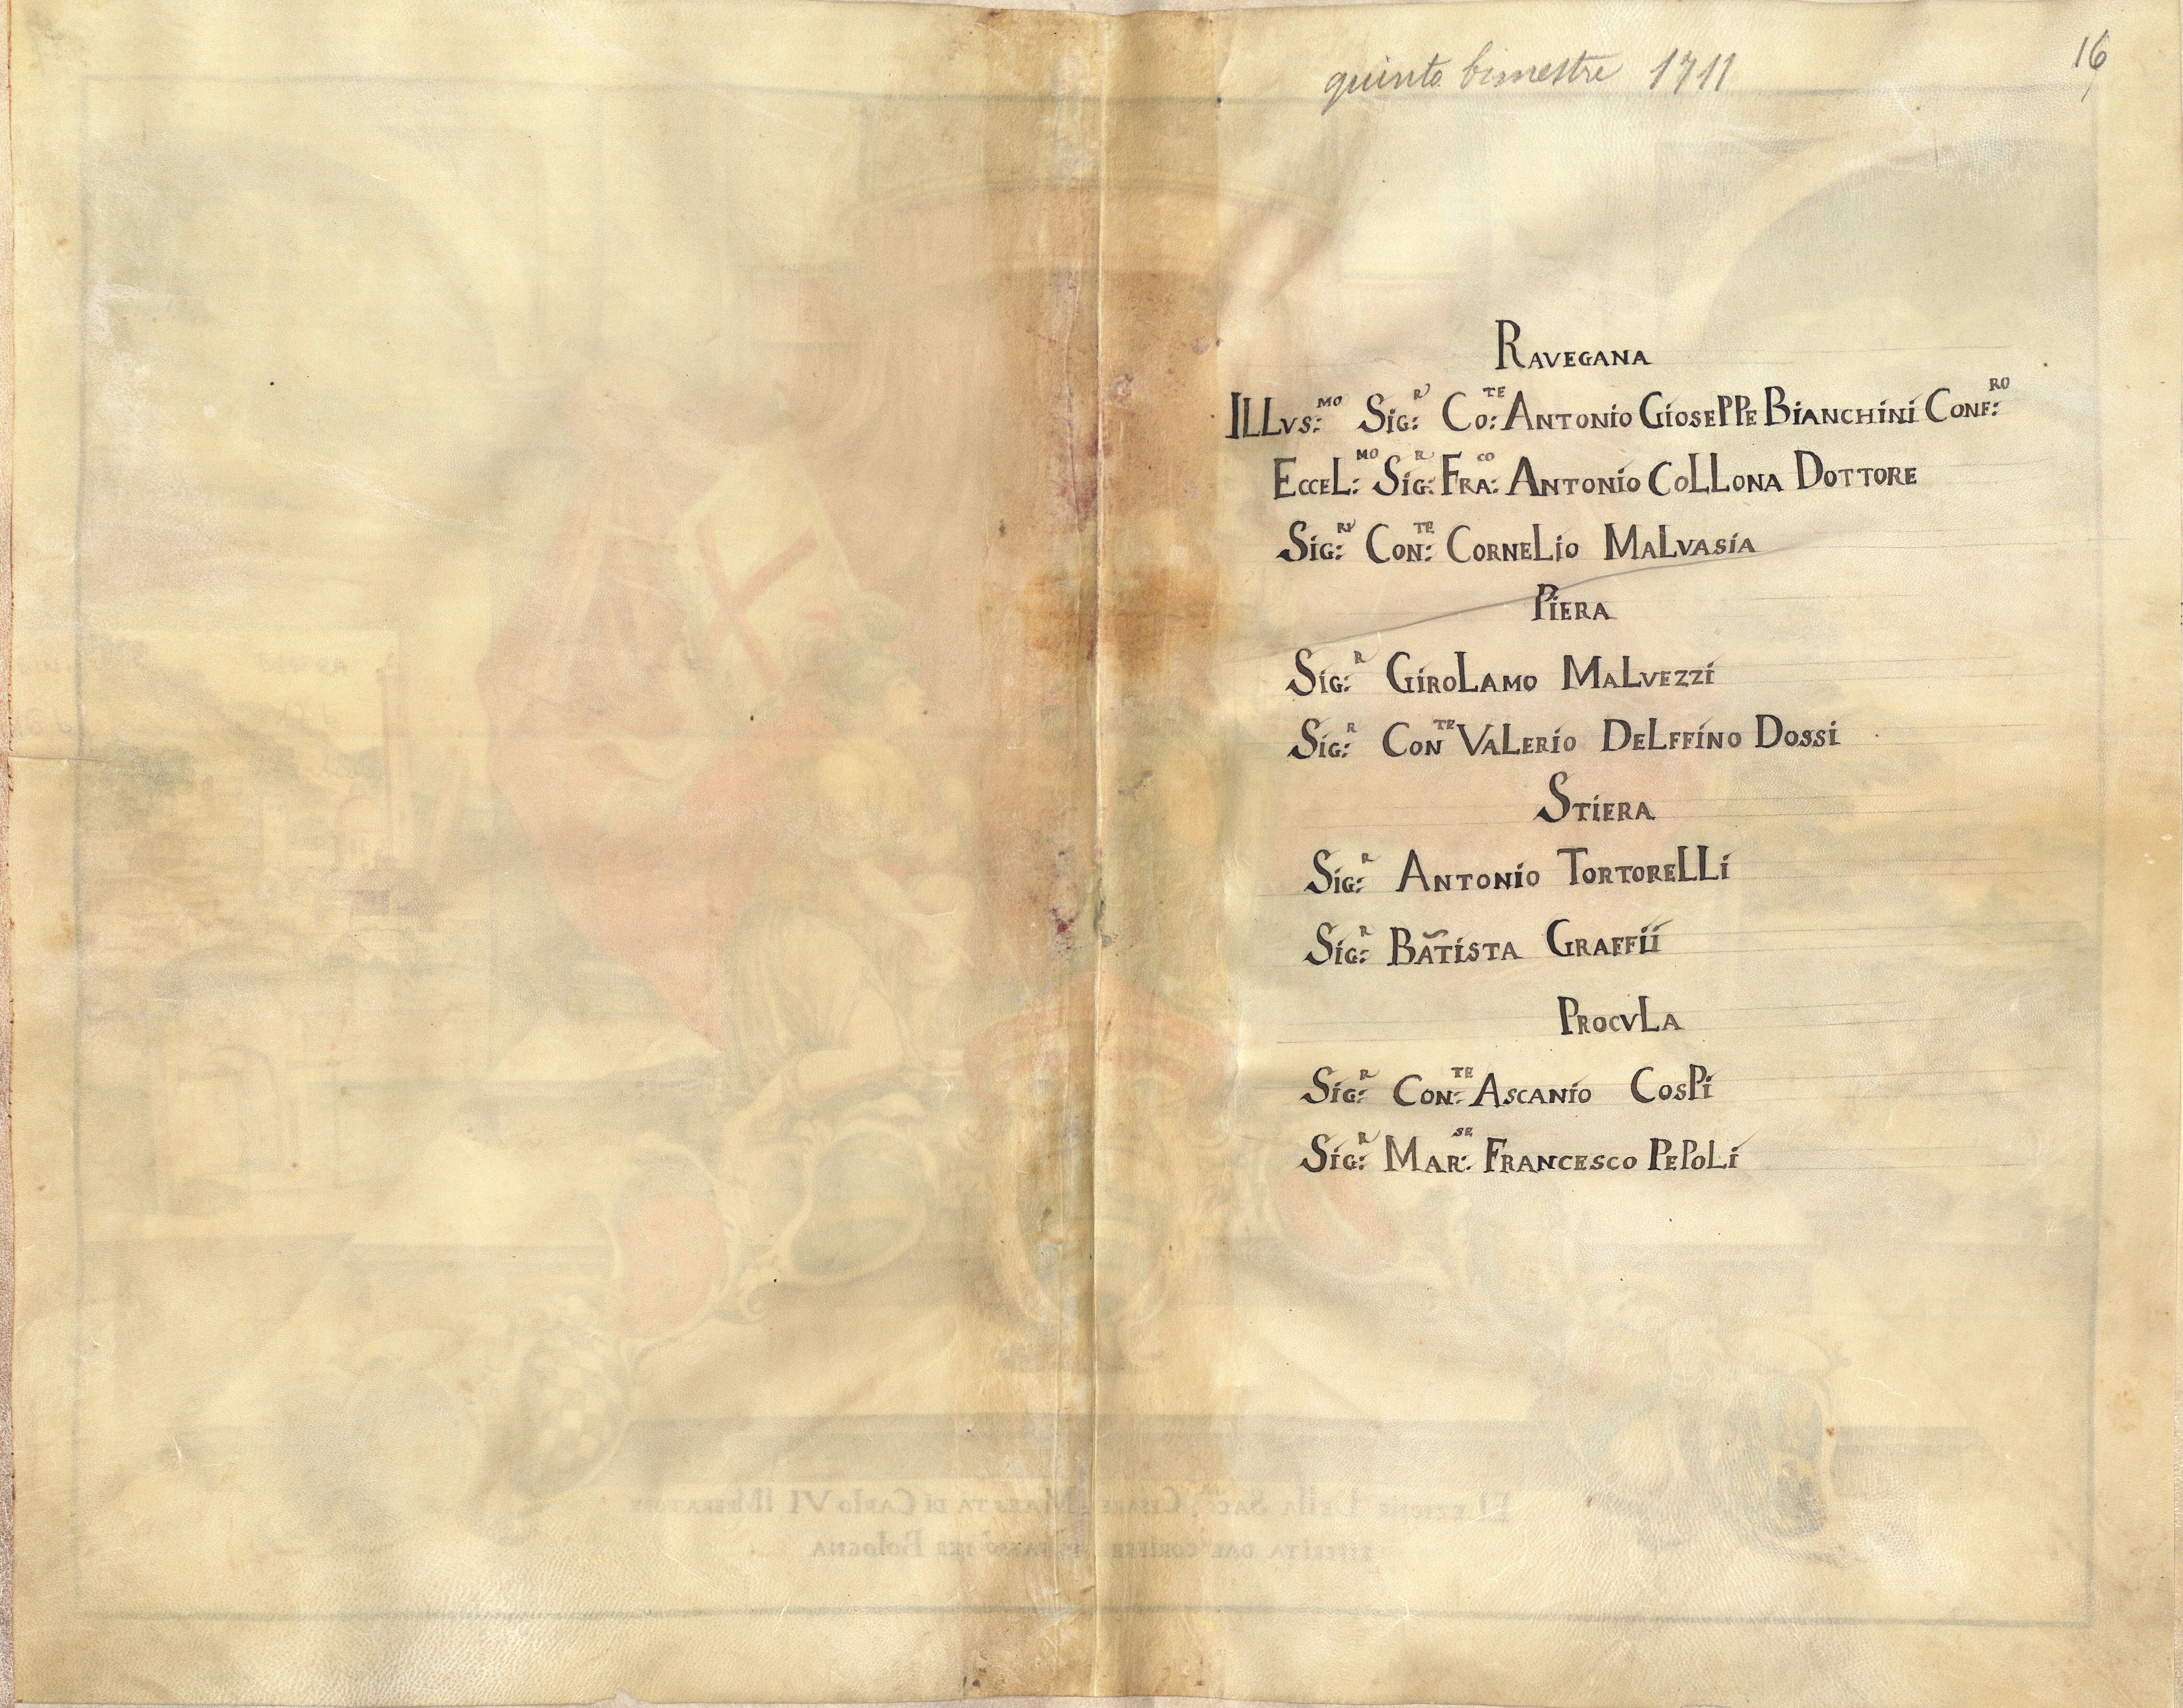 quinto bimestre 1711
16
RAVEGANA
ILLVS:MO SIG:R CO:TE ANTONIO GIOSEPPE BIANCHINI CONF:RO
ECCEL:MO SIG:R FRA:CO ANTONIO COLLONA DOTTORE
SIG:RI CON:TE CORNELIO MALVASIA
PIERA
SIG:R GIROLAMO MALVEZZI
SIG:R CONTE VALERIO DELFFINO DOSSI
STIERA
SIG:R ANTONIO TORTORELLI
SIG:R BATISTA GRAFFII
PROCVLA
SIG:R CON:TE ASCANIO COSPI
SIG:R MAR:SE FRANCESCO PEPOLI